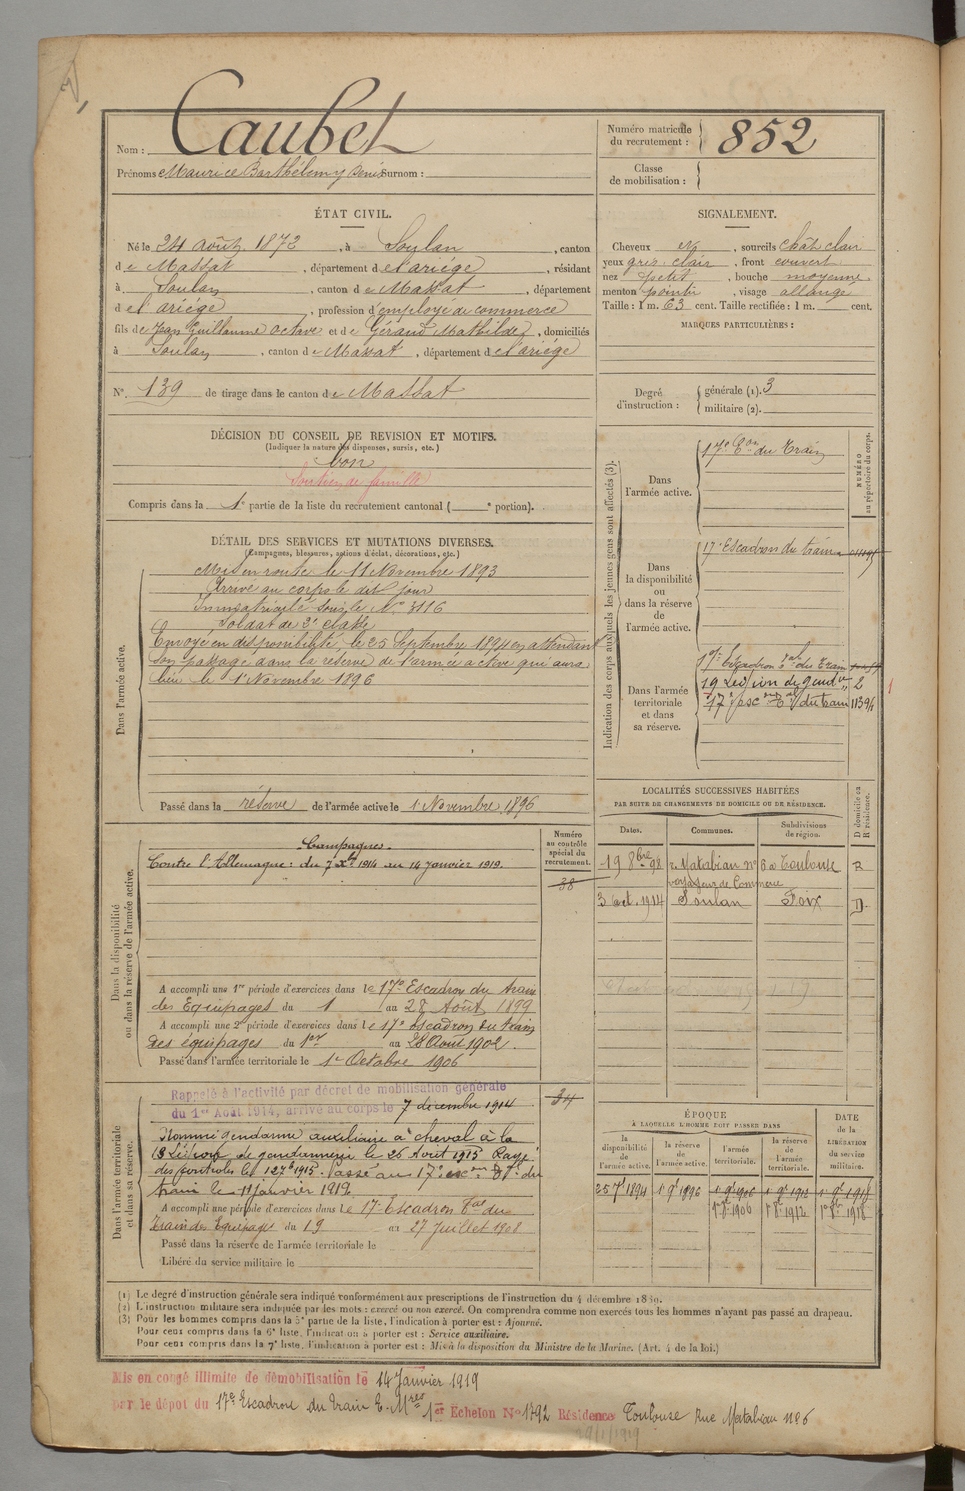 Nom : Caubet
Prénoms Maurice Barthélemy Denis Surnom :
Numéro matricule du recrutement : 852
Classe de mobilisation :
ÉTAT CIVIL.
Né le 24 août 1873, à Soulan, canton
de Massat, département de l'ariége, résidant
à Soulan, canton de Massat, département
de l'ariége, profession d'employé de commerce
fils de Jean Guillaume Octave et de Géraud Mathilde, domiciliés
à Soulan, canton de Massat, département de l'ariége
N° 139 de tirage dans le canton de Massat
SIGNALEMENT.
Cheveux et, sourcils chât clair
yeux gris clair, front couvert
nez petit, bouche moyenne.
menton pointu, visage allongé
Taille : 1 m. 63 cent. Taille rectifiée : 1 m. cent.
MARQUES PARTICULIÈRES :
Degré d'instruction : générale (1). 3
militaire (2).
DÉCISION DU CONSEIL DE REVISION ET MOTIFS.
(Indiquer la nature des dispenses, sursis, etc.)
bon
Soutien de famille
Compris dans la 1e partie de la liste du recrutement cantonal ( e portion).
DÉTAIL DES SERVICES ET MUTATIONS DIVERSES.
(Campagnes, blessures, actions d'éclat, décorations, etc.)
Dans l'armée active.
Mis en route le 11 Novembre 1893
Arrivé au corps le dit jour
Immatriculé sous le N° 3116
Soldat de 2e classe
Envoyé en disponibilité, le 25 Septembre 1894 en attendant
son passage dans la réserve de l'armée active qui aura
lieu le 1 Novembre 1896
Passé dans la réserve de l'armée active le 1 Novembre 1896
Indication des corps auxquels les jeunes gens sont affectés (3).
NUMÉRO au répertoire du corps.
Dans l'armée active.
17e Eon du Train
Dans la disponibilité ou dans la réserve de l'armée active.
17e Escadron du train
Dans l'armée territoriale et dans sa réserve.
17e Escadron Tal du Train
19 Légion de gendie 2
17e Esc on Tal du train 11394
1
LOCALITÉS SUCCESSIVES HABITÉES
PAR SUITE DE CHANGEMENTS DE DOMICILE OU DE RÉSIDENCE.
Dates. Communes. Subdivisions de région. D domicile ou R résidence.
19 8bre 98 r. Matabiau n° 6 Toulouse R
voyageur de Commerce
3 oct. 1914 Soulan Foix D
Dans la disponibilité ou dans la réserve de l'armée active.
Numéro au contrôle spécial du recrutement.
38
Campagnes.
Contre l'Allemagne : du 7 Xbre 1914 au 14 janvier 1919.
A accompli une 1re période d'exercices dans le 17e Escadron du train
des Equipages du 1 au 28 Août 1899
A accompli une 2e période d'exercices dans le 17e Escadron du train
des équipages du 1er au 28 Août 1902.
Passé dans l'armée territoriale le 1er Octobre 1906
Dans l'armée territoriale et dans sa réserve.
Rappelé à l'activité par décret de mobilisation générale
du 1er Août 1914, arrivé au corps le 7 décembre 1914
34
Nommé gendarme auxiliaire à cheval à la
Légion de gendarmerie le 26 Août 1915 Rayé
des contrôles le 1915. Passé au 17e Escon Tal du
train le 11 janvier 1919.
A accompli une période d'exercices dans le 17e Escadron Tal du
Train des Equipages du 19 au 27 Juillet 1908
Passé dans la réserve de l'armée territoriale le
Libéré du service militaire le
ÉPOQUE
À LAQUELLE L'HOMME DOIT PASSER DANS
la disponibilité de l'armée active. la réserve de l'armée active. l'armée territoriale. la réserve de l'armée territoriale.
DATE de la LIBÉRATION du service militaire.
25 7e 1894 1 9e 1896 1 9e 1906 1 9e 1912 1 9e 1918
1er 8e 1906 1er 8e 1912 1er 8e 1918
(1) Le degré d'instruction générale sera indiqué conformément aux prescriptions de l'instruction du 4 décembre 1889.
(2) L'instruction militaire sera indiquée par les mots : exercé ou non exercé. On comprendra comme non exercés tous les hommes n'ayant pas passé au drapeau.
(3) Pour les hommes compris dans la 5e partie de la liste, l'indication à porter est : Ajourné.
Pour ceux compris dans la 6e liste, l'indication à porter est : Service auxiliaire.
Pour ceux compris dans la 7e liste, l'indication à porter est : Mis à la disposition du Ministre de la Marine. (Art. 4 de la loi.)
Mis en congé illimité de démobilisation le 14 Janvier 1919
par le dépot du 17e Escadron du Train E. Mres 1er Echelon N° 1792 Résidence Toulouse Rue Matabiau n° 6
29/1/1919